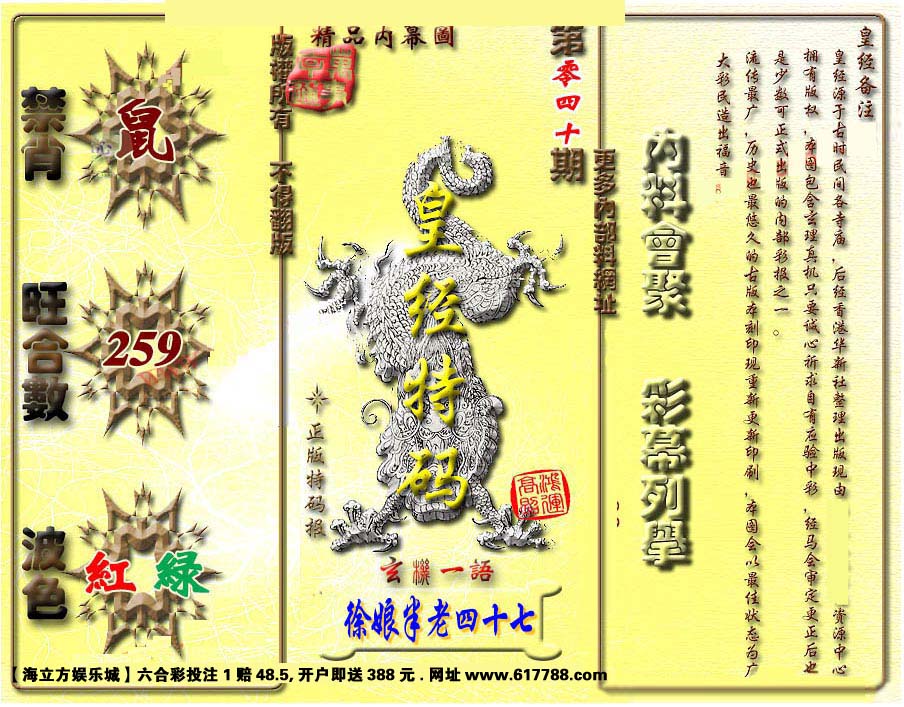 精品内幕圖
版權所有 不得翻版
第零四十期
更多内部料網址
禁肖
鼠
旺合數
259
波色
紅 綠
皇经特码
正版特码报
鴻運高照
玄機一語
徐娘半老四十七
内料會聚 彩幕列舉
皇经备注
皇经源于古时民间各寺庙,后经香港华新社整理出版现由 资源中心
拥有版权,本图包含玄理真机只要诚心祈求自有应验中彩,经马会审定更正后也
是少数可正式出版的内部彩报之一。
流传最广,历史也最悠久的古版本刻印现重新更新印刷,本图会以最佳状态为广
大彩民造出福音。
【海立方娱乐城】六合彩投注 1 赔 48.5, 开户即送 388 元 . 网址 www.617788.com